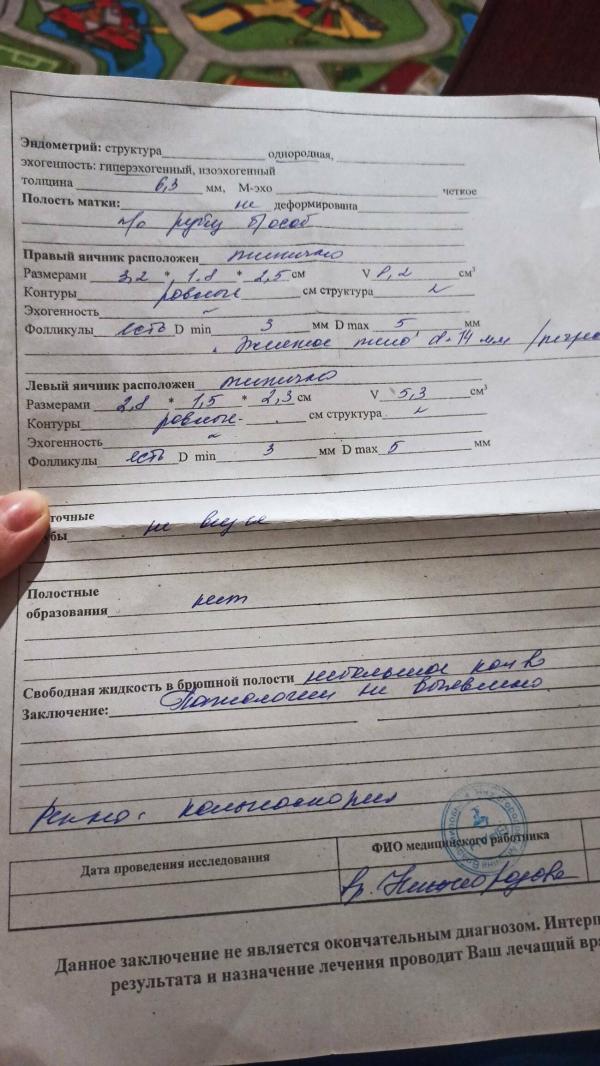 Эндометрий: структура однородная,
эхогенность: гиперэхогенный, изоэхогенный
толщина 6,3 мм, М-эхо четкое
Полость матки: не деформирована
п/о рубец б/особ
Правый яичник расположен типично
Размерами 3,2 * 1.8 * 2,5 см V 8,2 см³
Контуры ровные см структура
Эхогенность ~
Фолликулы есть D min 3 мм D max 5 мм
Желтое тело d-14 мм
Левый яичник расположен типично
Размерами 2,8 * 1,5 * 2,3 см V 5,3 см³
Контуры ровные см структура
Эхогенность ~
Фолликулы есть D min 3 мм D max 5 мм
точные
бы не виз-ся
Полостные
образования нет
Свободная жидкость в брюшной полости небольшое кол-в
Заключение: Патологии не выявлено
кольпоскопия
ФИО медицинского работника
Дата проведения исследования
вр.
Данное заключение не является окончательным диагнозом. Интерп
результата и назначение лечения проводит Ваш лечащий вра